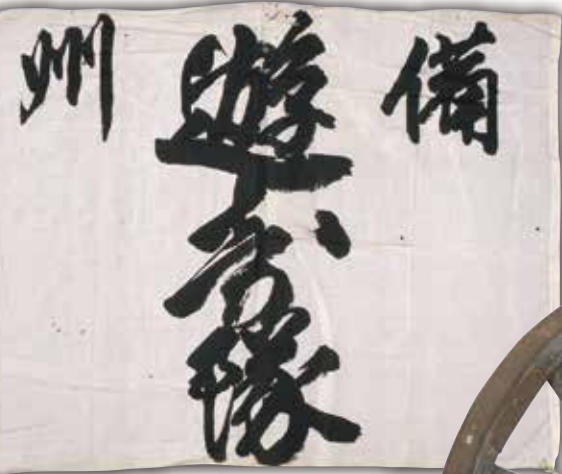 備州
遊奇隊